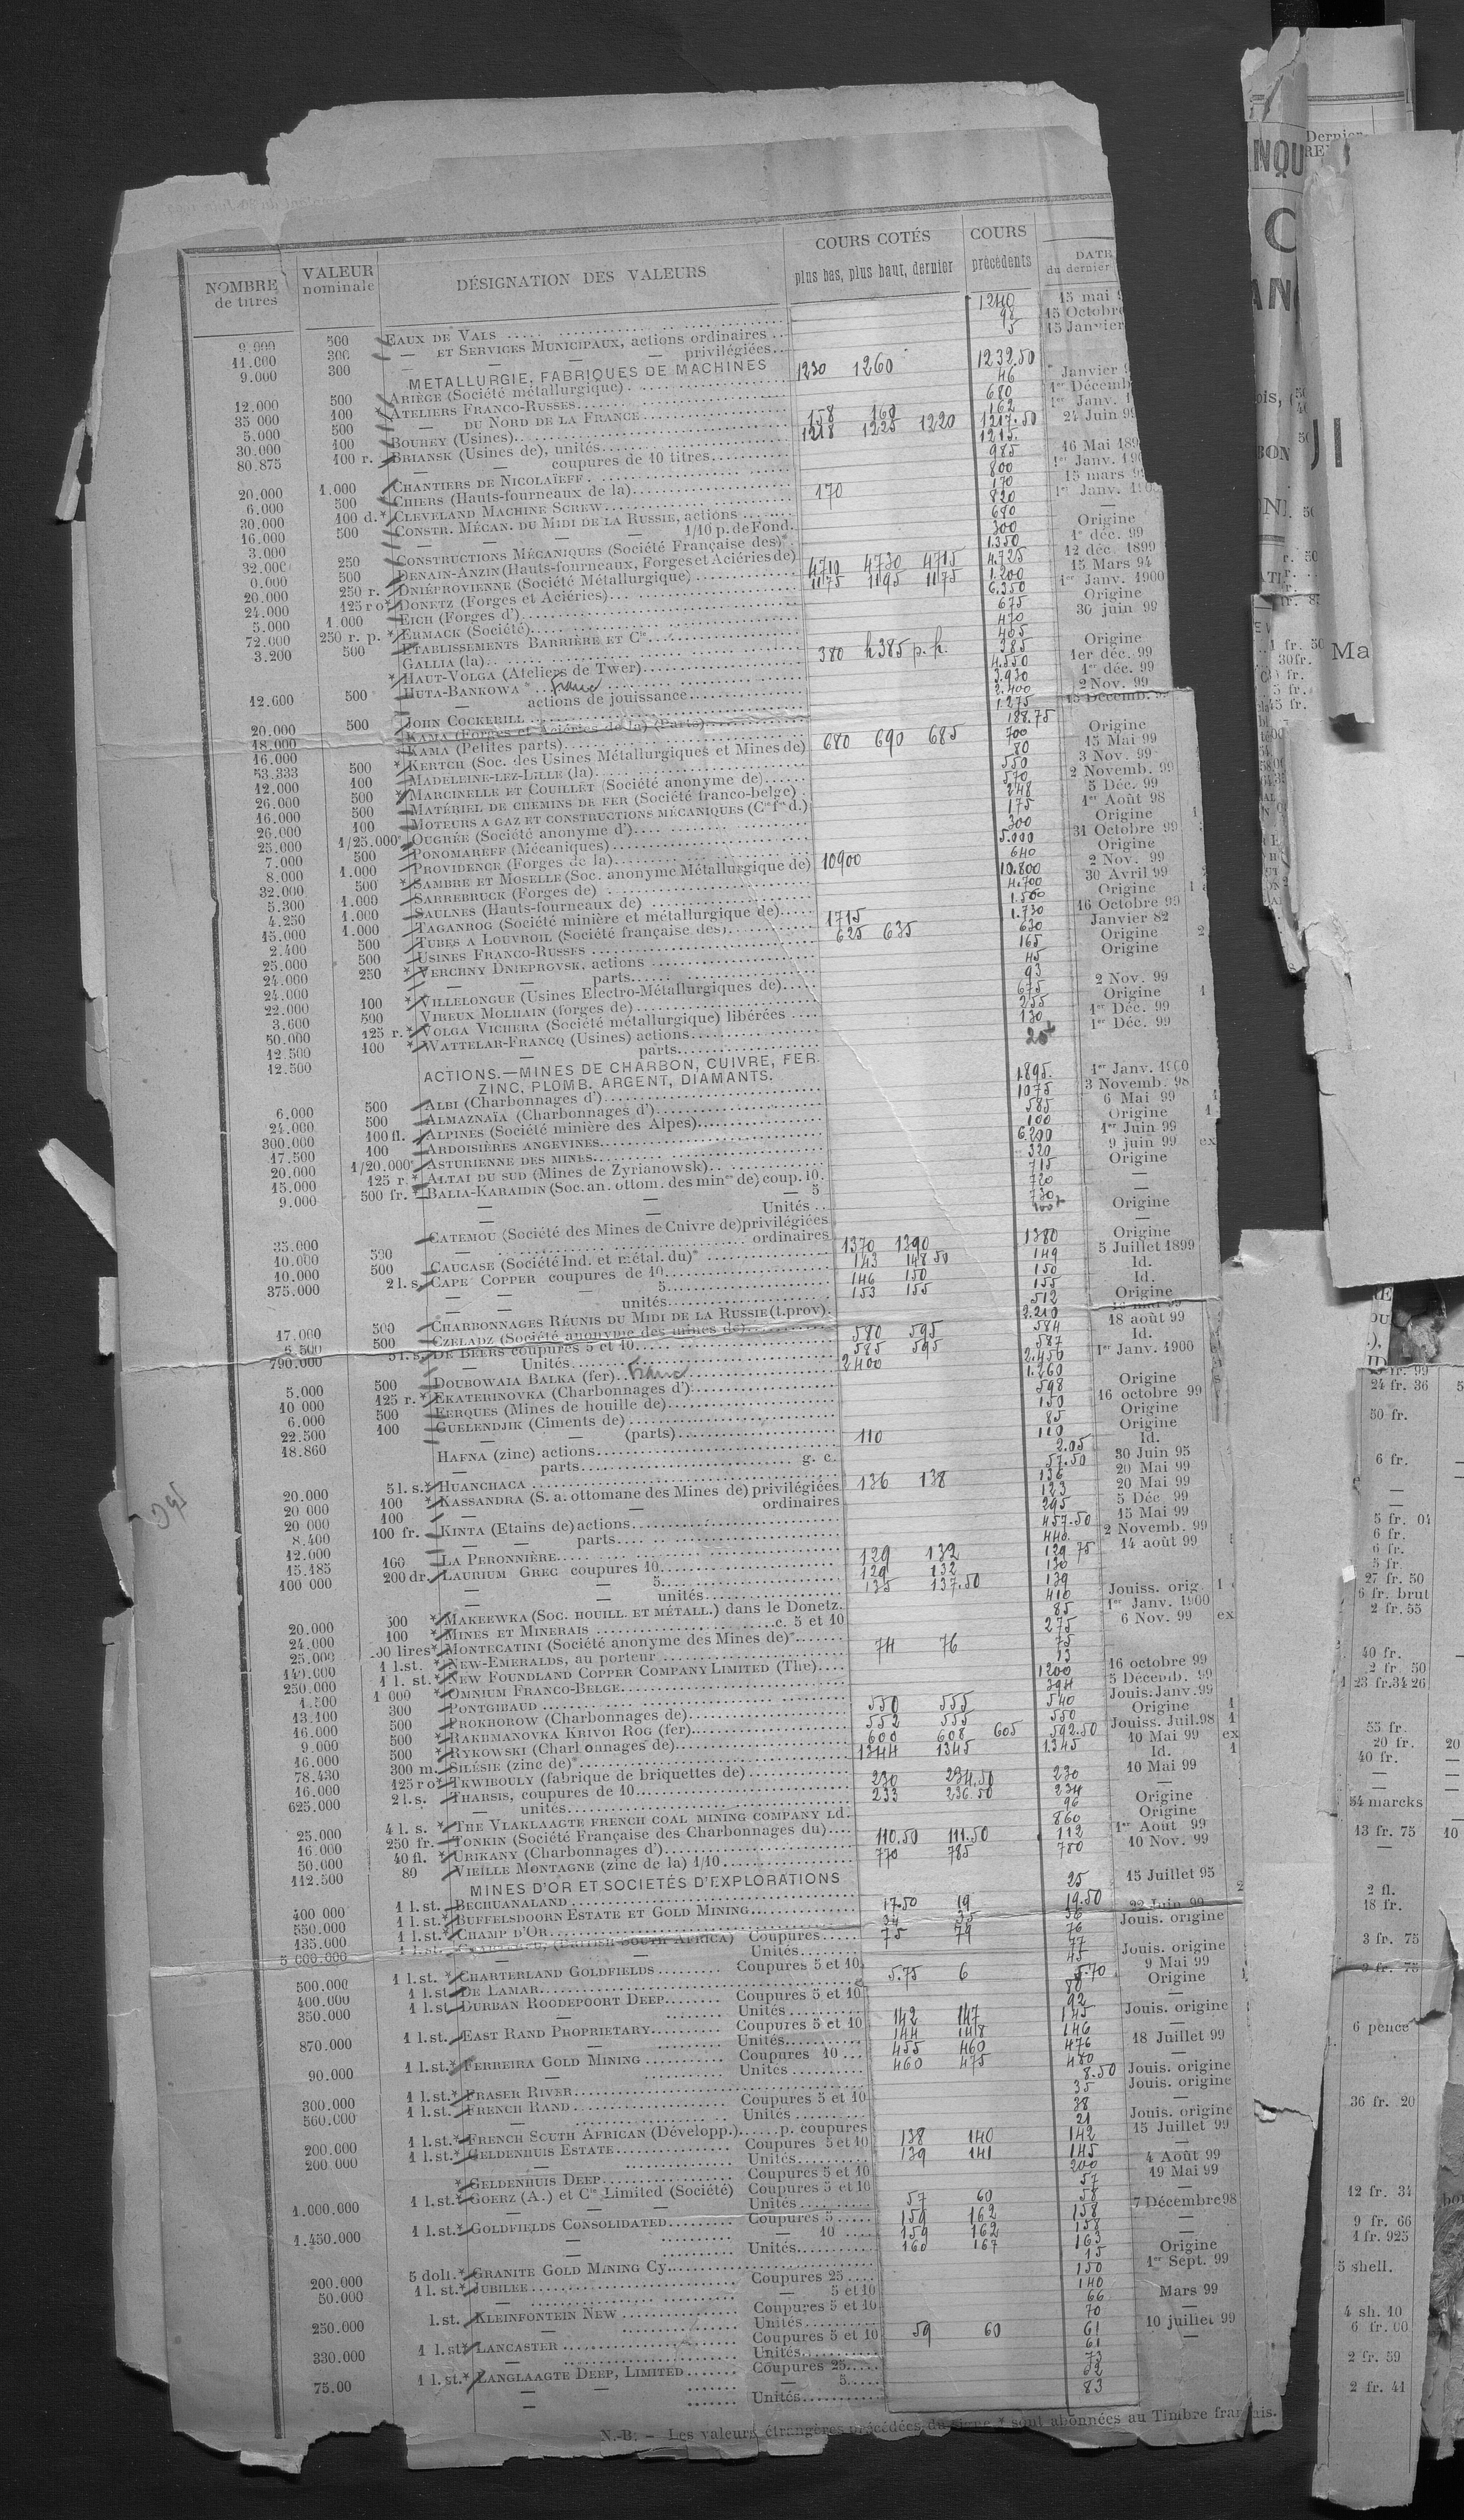 NOMBRE de titres | VALEUR nominale | DÉSIGNATION DES VALEURS | COURS COTÉS plus bas, plus haut, dernier | COURS précédents | DATE du dernier
500 EAUX DE VALS 1240 15 mai
11.000 300 — ET SERVICES MUNICIPAUX, actions ordinaires 98 15 Octobre
9.000 300 — — — privilégiées 5 15 Janvier
METALLURGIE, FABRIQUES DE MACHINES
12.000 500 ARIÈGE (Société métallurgique) 1230 1260 1232.50 Janvier
35 000 100 * ATELIERS FRANCO-RUSSES 46 1er Décemb
5.000 500 — DU NORD DE LA FRANCE 680 1er Janv.
30.000 100 BOUHEY (Usines) 158 160 162 24 Juin 99
80.875 100 r. BRIANSK (Usines de), unités 1218 1225 1220 1217.50
— — coupures de 10 titres 1215
20.000 1.000 CHANTIERS DE NICOLAÏEFF 985 16 Mai 189
6.000 500 CHIERS (Hauts-fourneaux de la) 800 1er Janv. 190
30.000 100 d. * CLEVELAND MACHINE SCREW 170 170 15 mars 9
16.000 500 CONSTR. MÉCAN. DU MIDI DE LA RUSSIE, actions 820 1er Janv. 1900
3.000 — — — — 1/10 p. de Fond. 680 —
32.000 250 CONSTRUCTIONS MÉCANIQUES (Société Française des)* 300 Origine
0.000 500 DENAIN-ANZIN (Hauts-fourneaux, Forges et Aciéries de) 1.350 1er déc. 99
20.000 250 r. DNIÉPROVIENNE (Société Métallurgique) 4710 4730 4715 4.725 12 déc. 1899
24.000 125 r o* DONETZ (Forges et Aciéries) 1175 1195 1175 1.200 15 Mars 94
5.000 1.000 EICH (Forges d') 6.350 1er Janv. 1900
72.000 250 r. p. * ERMACK (Société) 675 Origine
3.200 500 ETABLISSEMENTS BARRIÈRE ET Cie 470 30 juin 99
GALLIA (la) 405
* HAUT-VOLGA (Ateliers de Twer) 380 h 385 p. h. 385 Origine
12.600 500 HUTA-BANKOWA * Franc 4.550 1er déc. 99
— actions de jouissance 3.930 1er déc. 99
20.000 500 JOHN COCKERILL 2.400 2 Nov. 99
18.000 KAMA (Forges et Aciéries de la) (Parts) 1.275 15 Décemb. 99
16.000 KAMA (Petites parts) 188.75
53.333 500 * KERTCH (Soc. des Usines Métallurgiques et Mines de) 680 690 685 700 Origine
12.000 100 MADELEINE-LEZ-LILLE (la) 80 15 Mai 99
26.000 500 * MARCINELLE ET COUILLET (Société anonyme de) 550 3 Nov. 99
16.000 500 MATÉRIEL DE CHEMINS DE FER (Société franco-belge) 570 2 Novemb. 99
26.000 100 MOTEURS A GAZ ET CONSTRUCTIONS MÉCANIQUES (Cie fse d.) 248 5 Déc. 99
25.000 1/25.000e OUGRÉE (Société anonyme d') 175 1er Août 98
7.000 500 PONOMAREFF (Mécaniques) 300 Origine
8.000 1.000 PROVIDENCE (Forges de la) 5.000 31 Octobre 99
32.000 500 * SAMBRE ET MOSELLE (Soc. anonyme Métallurgique de) 640 Origine
5.300 1.000 SARREBRUCK (Forges de) 10900 10.800 2 Nov. 99
4.250 1.000 SAULNES (Hauts-fourneaux de) 4.700 30 Avril 99
15.000 1.000 TAGANROG (Société minière et métallurgique de) 1.560 Origine
2.400 500 TUBES A LOUVROIL (Société française des) 1715 1.730 16 Octobre 99
25.000 500 USINES FRANCO-RUSSES 625 635 630 Janvier 82
24.000 250 * VERCHNY DNIEPROVSK, actions 165 Origine
24.000 — — parts 45 Origine
22.000 100 * VILLELONGUE (Usines Electro-Métallurgiques de) 93
3.600 500 VIREUX MOLHAIN (forges de) 675 2 Nov. 99
50.000 125 r. * VOLGA VICHERA (Société métallurgique) libérées 255 Origine
12.500 100 * WATTELAR-FRANCQ (Usines) actions 130 1er Déc. 99
12.500 — parts 1er Déc. 99
ACTIONS.—MINES DE CHARBON, CUIVRE, FER. ZINC, PLOMB, ARGENT, DIAMANTS.
6.000 500 ALBI (Charbonnages d') 1.895 1er Janv. 1900
24.000 500 ALMAZNAÏA (Charbonnages d') 1075 3 Novemb. 98
300.000 100 fl. ALPINES (Société minière des Alpes) 585 6 Mai 99
17.500 100 ARDOISIÈRES ANGEVINES 100 Origine
20.000 1/20.000e ASTURIENNE DES MINES 6.200 1er Juin 99
15.000 125 r. * ALTAI DU SUD (Mines de Zyrianowsk) 320 9 juin 99 ex
9.000 500 fr. * BALIA-KARAIDIN (Soc. an. ottom. des mines de) coup. 10. 715 Origine
— — — 5 720 —
— — Unités 730 —
35.000 CATEMOU (Société des Mines de Cuivre de) privilégiées Origine
10.000 500 — ordinaires —
10.000 500 CAUCASE (Société Ind. et métal. du)* 1370 1390 1380 Origine
375.000 2 l. s. CAPE COPPER coupures de 10 143 148 50 149 5 Juillet 1899
— — — 5 146 150 150 Id.
— — unités 153 155 155 Id.
17.000 500 CHARBONNAGES RÉUNIS DU MIDI DE LA RUSSIE (t. prov). 512 Origine
6.500 500 CZELADZ (Société anonyme des mines de) 2.210 mai 99
790.000 5 l. s. DE BEERS coupures 5 et 10 580 595 584 18 août 99
— Unités 585 595 587 Id.
5.000 500 DOUBOWAIA BALKA (fer) Franc 2400 2.450 1er Janv. 1900
10 000 125 r. * EKATERINOVKA (Charbonnages d') 1.260
6.000 500 FERQUES (Mines de houille de) 598 Origine
22.500 100 GUELENDJIK (Ciments de) 150 16 octobre 99
18.860 — — (parts) 85 Origine
HAFNA (zinc) actions 110 110 Origine
— parts g. c. 2.05 Id.
20.000 5 l. s. * HUANCHACA 57.50 30 Juin 95
20 000 100 * KASSANDRA (S. a. ottomane des Mines de) privilégiées 136 138 136 20 Mai 99
20 000 100 — — ordinaires 123 20 Mai 99
8.400 100 fr. KINTA (Etains de) actions 295 5 Déc 99
12.000 — — parts 457.50 15 Mai 99
15.185 100 LA PERONNIÈRE 440 2 Novemb. 99
100 000 200 dr. LAURIUM GREC coupures 10 129 132 129 75 14 août 99
— — 5 129 132 130
— — unités 135 137.50 139
20.000 500 * MAKEEWKA (Soc. HOUILL. ET MÉTALL.) dans le Donetz. 410 Jouiss. orig.
24.000 100 * MINES ET MINERAIS c. 5 et 10 85 1er Janv. 1900
25.000 00 lires * MONTECATINI (Société anonyme des Mines de)* 275 6 Nov. 99 ex
140.000 1 l.st. * NEW-EMERALDS, au porteur 74 76 75
250.000 1 l. st. * NEW FOUNDLAND COPPER COMPANY LIMITED (The) 13
1.500 1 000 * OMNIUM FRANCO-BELGE 1200 16 octobre 99
13.100 300 PONTGIBAUD 394 5 Décemb. 99
16.000 500 PROKHOROW (Charbonnages de) 550 555 540 Jouis. Janv. 99
9.000 500 * RAKHMANOVKA KRIVOI ROG (fer) 552 555 550 Origine
16.000 500 * RYKOWSKI (Charbonnages de) 600 608 605 592.50 Jouiss. Juil. 98
78.430 300 m. SILÉSIE (zinc de)* 1344 1345 1345 10 Mai 99 ex
16.000 125 r o* TKWIBOULY (fabrique de briquettes de) Id.
625.000 2 l. s. THARSIS, coupures de 10 230 234.50 230 10 Mai 99
— unités 233 236.50 234 —
25.000 4 l. s. * THE VLAKLAAGTE FRENCH COAL MINING COMPANY Ld. 96 Origine
16.000 250 fr. TONKIN (Société Française des Charbonnages du) 860 Origine
50.000 40 fl. * URIKANY (Charbonnages d') 110.50 111.50 112 1er Août 99
112.500 80 VIEILLE MONTAGNE (zinc de la) 1/10 770 785 780 10 Nov. 99
MINES D'OR ET SOCIETÉS D'EXPLORATIONS
400 000 1 l. st. BECHUANALAND 25 15 Juillet 95
550.000 1 l. st. * BUFFELSDOORN ESTATE ET GOLD MINING 17.50 19 19.50
135.000 1 l.st. * CHAMP D'OR 34 35 36 22 Juin 99
5 000.000 (BRITISH SOUTH AFRICA) Coupures 75 79 76 Jouis. origine
— Unités 77
500.000 1 l.st. * CHARTERLAND GOLDFIELDS Coupures 5 et 10 45 Jouis. origine
400.000 1 l.st. DE LAMAR 5.75 6 5.70 9 Mai 99
350.000 1 l.st DURBAN ROODEPOORT DEEP Coupures 5 et 10 80 Origine
— Unités 92 —
870.000 1 l.st. EAST RAND PROPRIETARY Coupures 5 et 10 142 147 145 Jouis. origine
— Unités 144 148 146 —
90.000 1 l.st.* FERREIRA GOLD MINING Coupures 10 455 460 476 18 Juillet 99
— Unités 460 475 480 —
300.000 1 l.st.* FRASER RIVER 8.50 Jouis. origine
560.000 1 l.st. FRENCH RAND Coupures 5 et 10 35 Jouis. origine
— Unités 38 —
200.000 1 l.st.* FRENCH SOUTH AFRICAN (Développ.) p. coupures 21 Jouis. origine
200.000 1 l.st.* GELDENHUIS ESTATE Coupures 5 et 10 138 140 142 15 Juillet 99
— Unités 139 141 145 —
* GELDENHUIS DEEP Coupures 5 et 10 200 4 Août 99
1.000.000 1 l.st.* GOERZ (A.) et Cie Limited (Société) Coupures 5 et 10 57 19 Mai 99
— — Unités 57 60 58 —
1.450.000 1 l.st.* GOLDFIELDS CONSOLIDATED Coupures 5 159 162 158 7 Décembre 98
— — 10 159 162 158 —
— Unités 160 167 163 —
200.000 5 doll.* GRANITE GOLD MINING Cy 15 Origine
50.000 1 l. st.* JUBILEE Coupures 25 150 1er Sept. 99
— — 5 et 10 140
250.000 l.st. KLEINFONTEIN NEW Coupures 5 et 10 66 Mars 99
— Unités 70 —
330.000 1 l.st* LANCASTER Coupures 5 et 10 59 60 61 10 juillet 99
— Unités 61 —
75.00 1 l. st.* LANGLAAGTE DEEP, LIMITED Coupures 25 73
— — — 5
— Unités 83
N.-B. — Les valeurs étrangères précédées du signe * sont abonnées au Timbre français.
Dernier
NQU
C
AN
BON
Ma
24 fr. 36
50 fr.
6 fr.
5 fr. 01
6 fr.
6 fr.
5 fr.
27 fr. 50
6 fr. brut
2 fr. 55
40 fr.
2 fr. 50
23 fr.34 26
55 fr.
20 fr. 20
40 fr.
54 marcks
13 fr. 75 10
2 fl.
18 fr.
3 fr. 75
3 fr. 75
6 pence
36 fr. 20
12 fr. 34
9 fr. 66
1 fr. 925
5 shell.
4 sh. 10
6 fr. 00
2 fr. 59
2 fr. 41